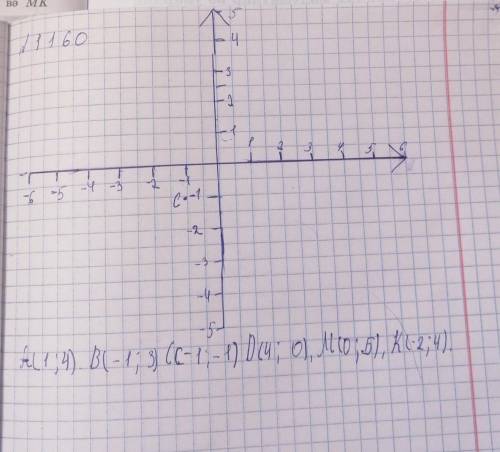 вә МК
№1160
5
4
3
2
1
1 2 3 4 5 6
-6 -5 -4 -3 -2 -1
C -1
-2
-3
-4
-5
A(1;4). B(-1;3) C(-1;-1) D(4; 0), M(0;5), K(-2;4).